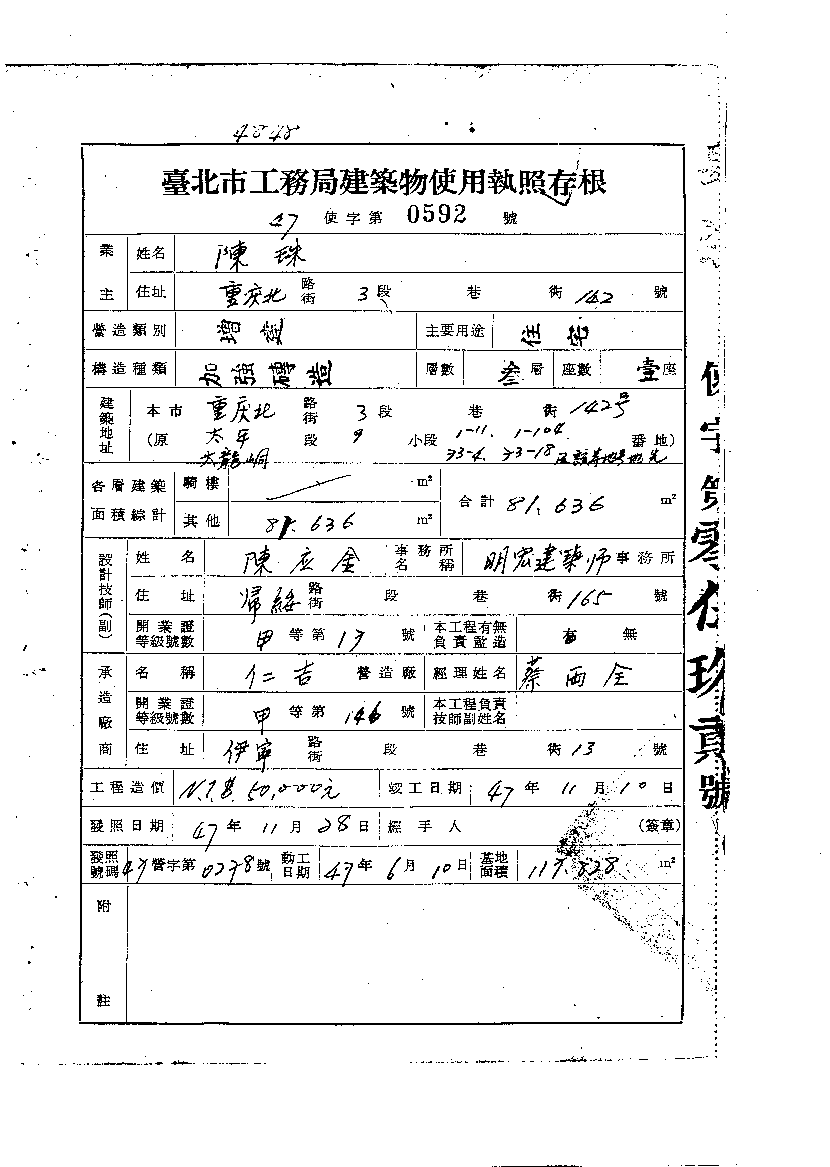 4848
臺北市工務局建築物使用執照存根
47 使字第 0592 號
業主 姓名 陳珠
住址 重庆北 路街 3段 巷 衖 142 號
營造類別 增建 主要用途 住宅
構造種類 加強磚造 層數 叁層 座數 壹座
建築地址 本市 重庆北 路街 3段 巷 衖 142号
(原 太平 段 9 小段 1-11、1-104 番地)
大龍峒 33-4、33-18
各層建築面積綜計 騎樓 m² 合計 81.636 m²
其他 81.636 m²
設計技師(副) 姓名 陳应金 事務所名稱 明宏建築师事務所
住址 歸綏 路街 段 巷 衖 165 號
開業證等級號數 甲等第 17 號 本工程有無負責監造 有 無
承造廠商 名稱 仁吉 營造廠 經理姓名 蔡西全
開業證等級號數 甲等第 146 號 本工程負責技師副姓名
住址 伊寧 路街 段 巷 衖 13 號
工程造價 N.T.$ 50,000元 竣工日期 47年 11月 10日
發照日期 47年 11月 28日 經手人 (簽章)
發照號碼 47營字第 0278號 動工日期 47年 6月 10日 基地面積 117.828 m²
附註
使字第零伍玖貳號